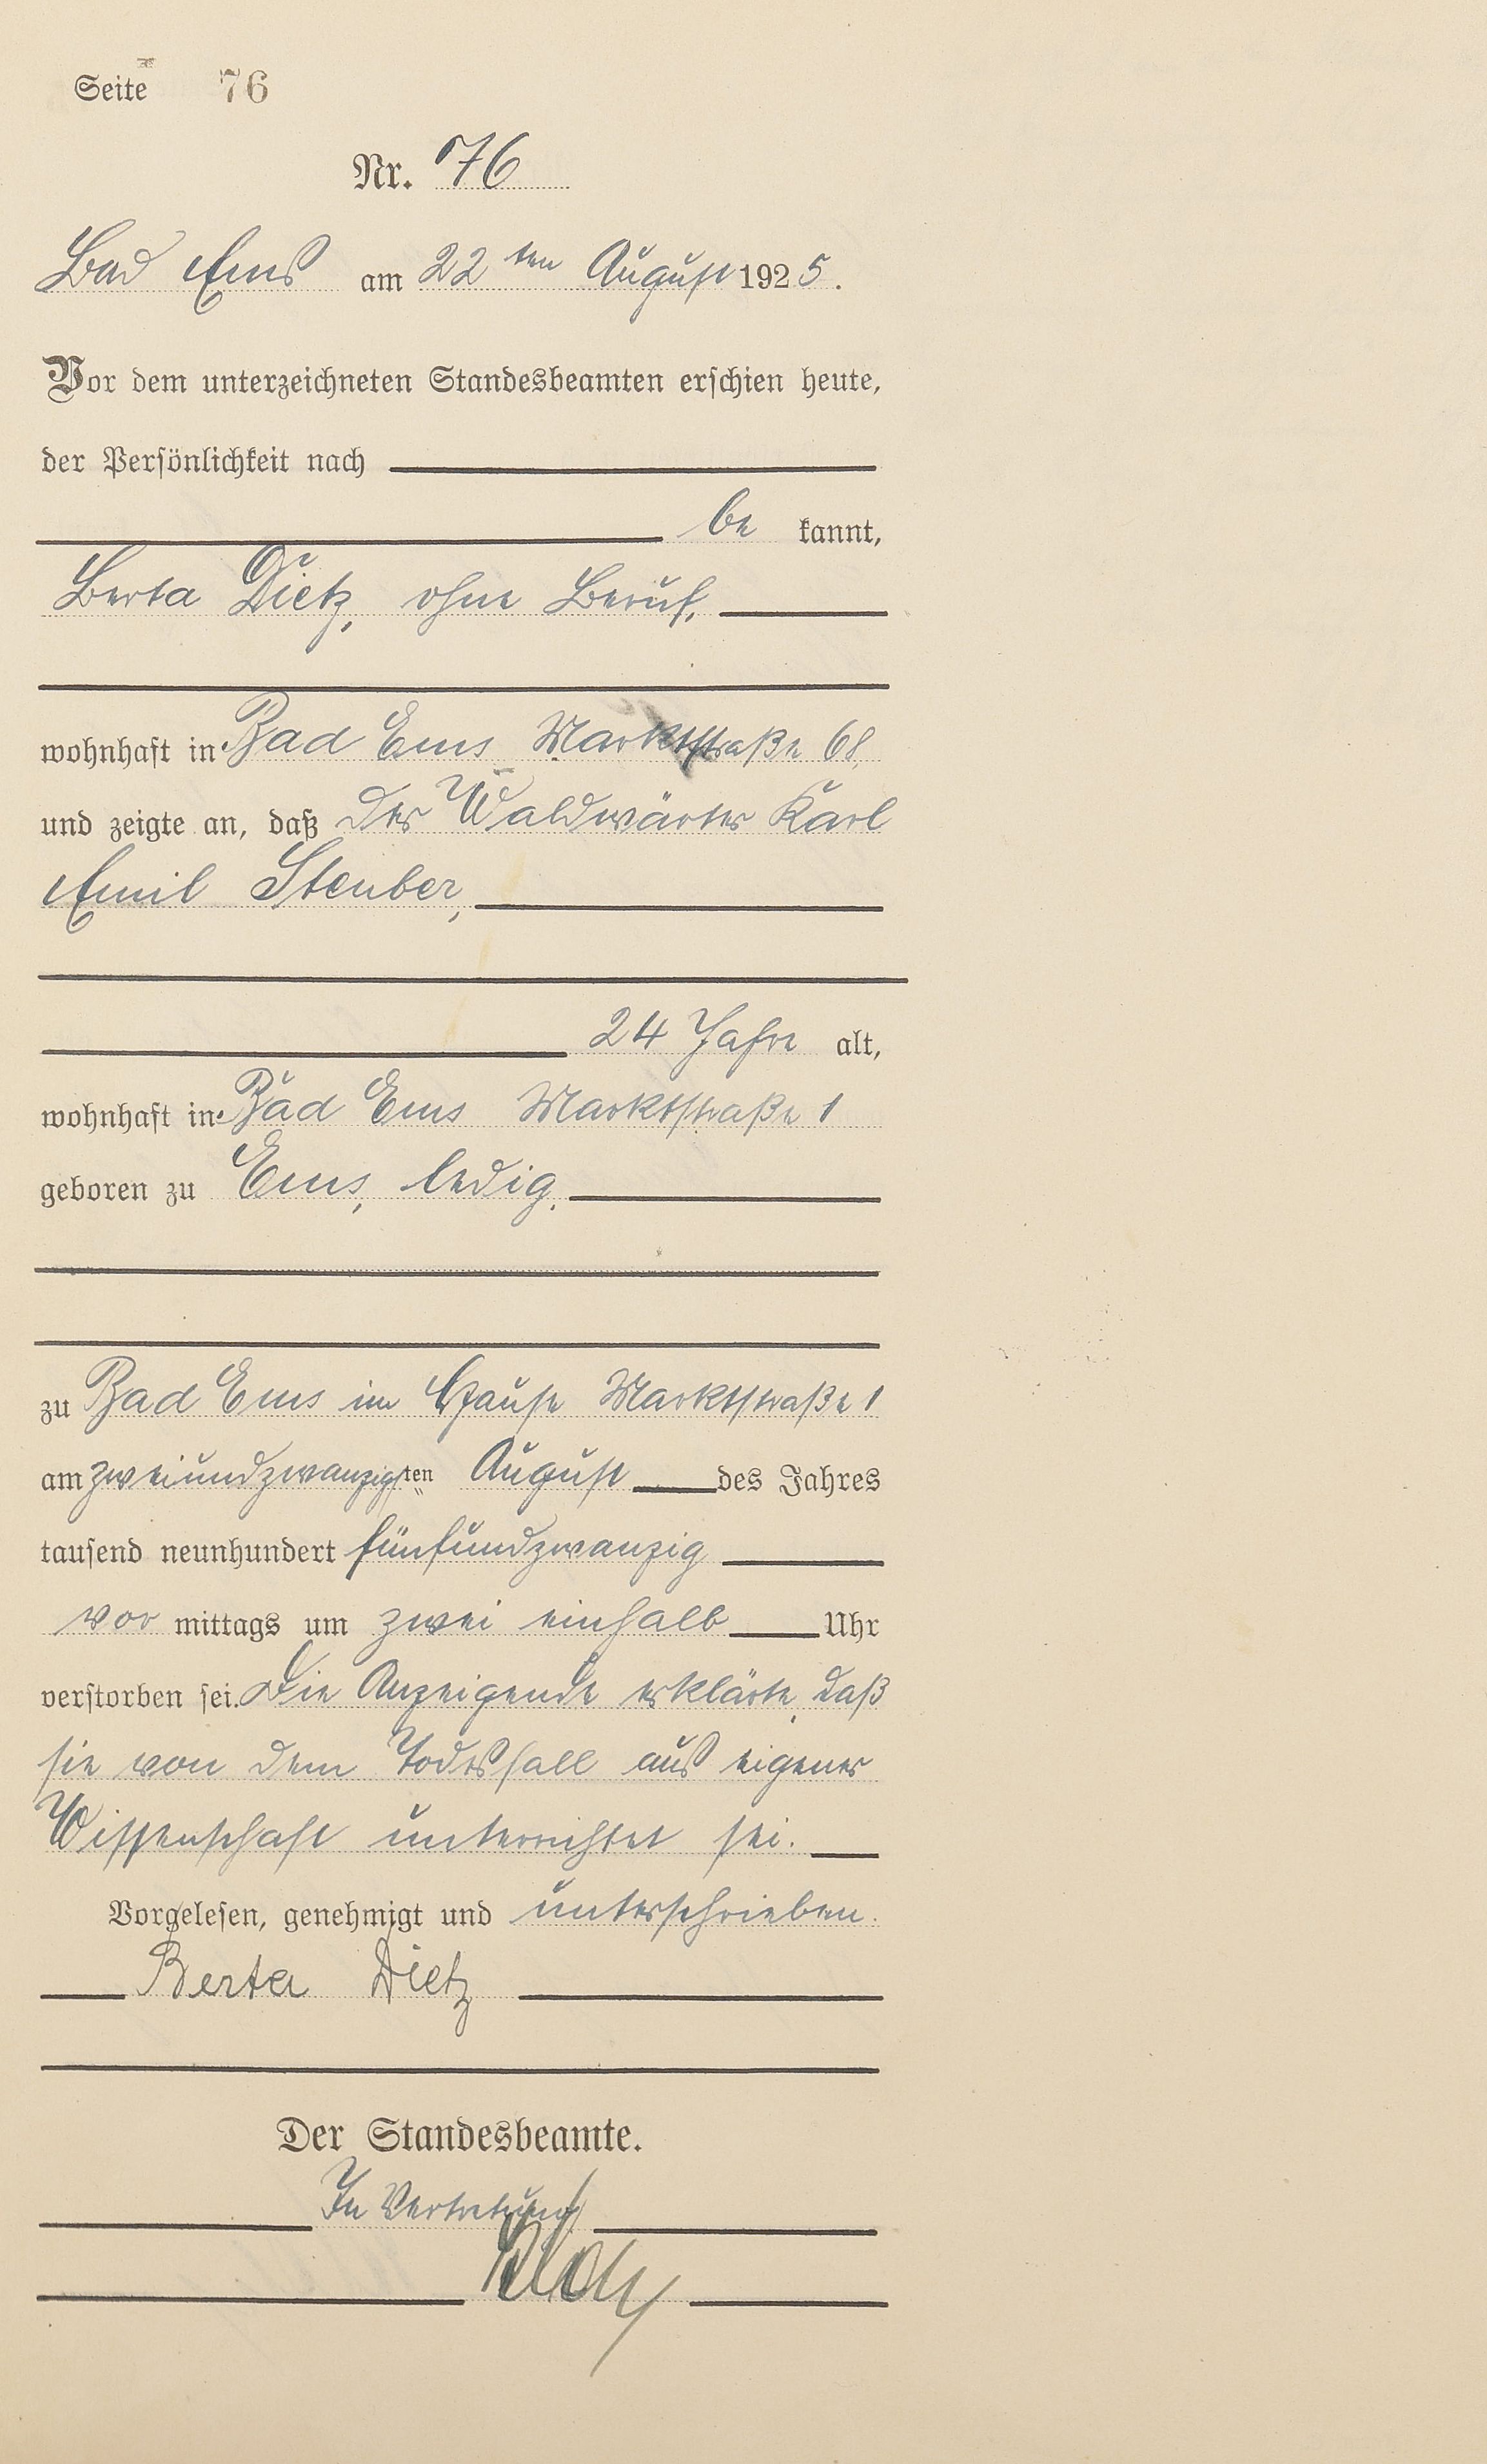 Seite 76
Nr. 76
Bad Ems am 22ten August 1925.
Vor dem unterzeichneten Standesbeamten erschien heute,
der Persönlichkeit nach
be kannt,
Berta Dietz, ohne Beruf,
wohnhaft in Bad Ems Marktstraße 68,
und zeigte an, daß der Waldwärter Karl
Emil Steuber,
24 Jahre alt,
wohnhaft in Bad Ems Marktstraße 1
geboren zu Ems, ledig,
zu Bad Ems im Hause Marktstraße 1
am zweiundzwanzigsten August des Jahres
tausend neunhundert fünfundzwanzig
vor mittags um zwei einhalb Uhr
verstorben sei. Die Anzeigende erklärte, daß
sie von dem Todesfall aus eigener
Wissenschaft unterrichtet sei.
Vorgelesen, genehmigt und unterschrieben.
Berta Dietz
Der Standesbeamte.
In Vertretung